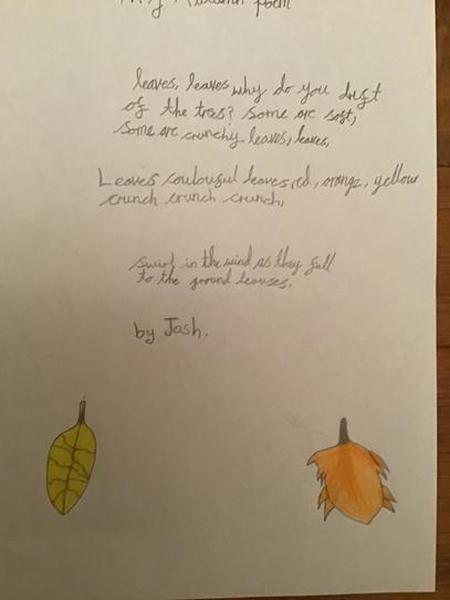 My Autumn poem
leaves, leaves why do you drift
of the trees? Some are soft,
some are crunchy leaves, leaves,
Leaves coulouful leaves, red, orange, yellow
crunch crunch crunch,
swirl in the wind as they fall
to the ground leauses.
by Josh.